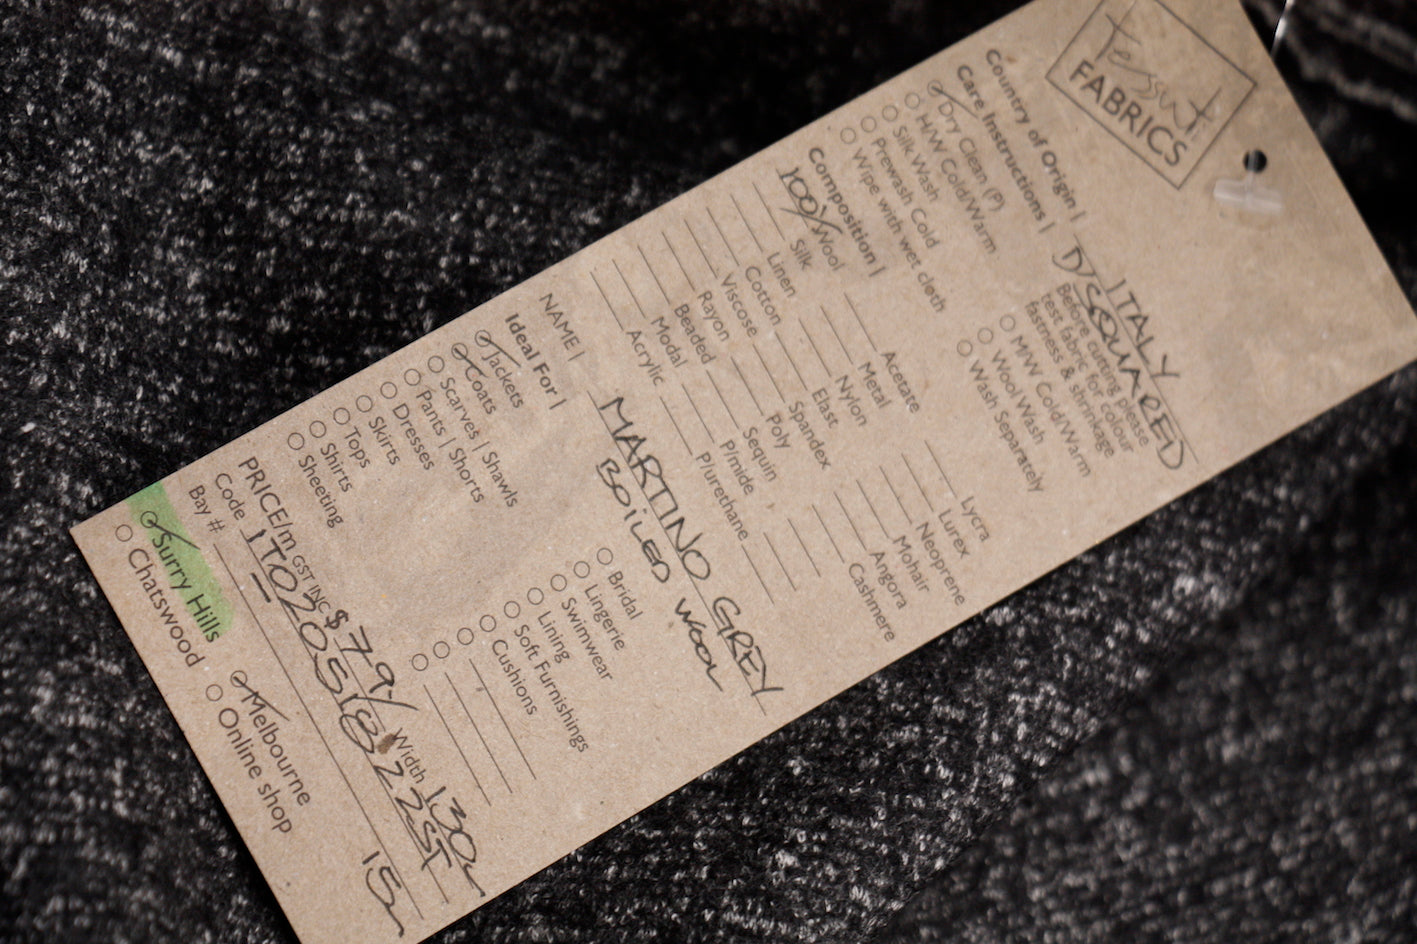 Tessuti
FABRICS
Country of Origin | ITALY
Care Instructions | D/SQUARED
Dry Clean (P)
H/W Cold/Warm
Silk Wash
Prewash Cold
Wipe with wet cloth
Before cutting please
test fabric for colour
fastness & shrinkage
M/W Cold/Warm
Wool Wash
Wash Separately
Composition |
100% Wool
Silk
Linen
Cotton
Viscose
Rayon
Beaded
Modal
Acrylic
Acetate
Metal
Nylon
Elast
Spandex
Poly
Sequin
P/mide
P/urethane
Lycra
Lurex
Neoprene
Mohair
Angora
Cashmere
NAME | MARTINO GREY
BOILED WOOL
Ideal For |
Jackets
Coats
Scarves | Shawls
Pants | Shorts
Dresses
Skirts
Tops
Shirts
Sheeting
Bridal
Lingerie
Swimwear
Lining
Soft Furnishings
Cushions
PRICE/m GST INC $79/ Width 130
Code
Bay # 15m
Surry Hills
Chatswood
Melbourne
Online shop